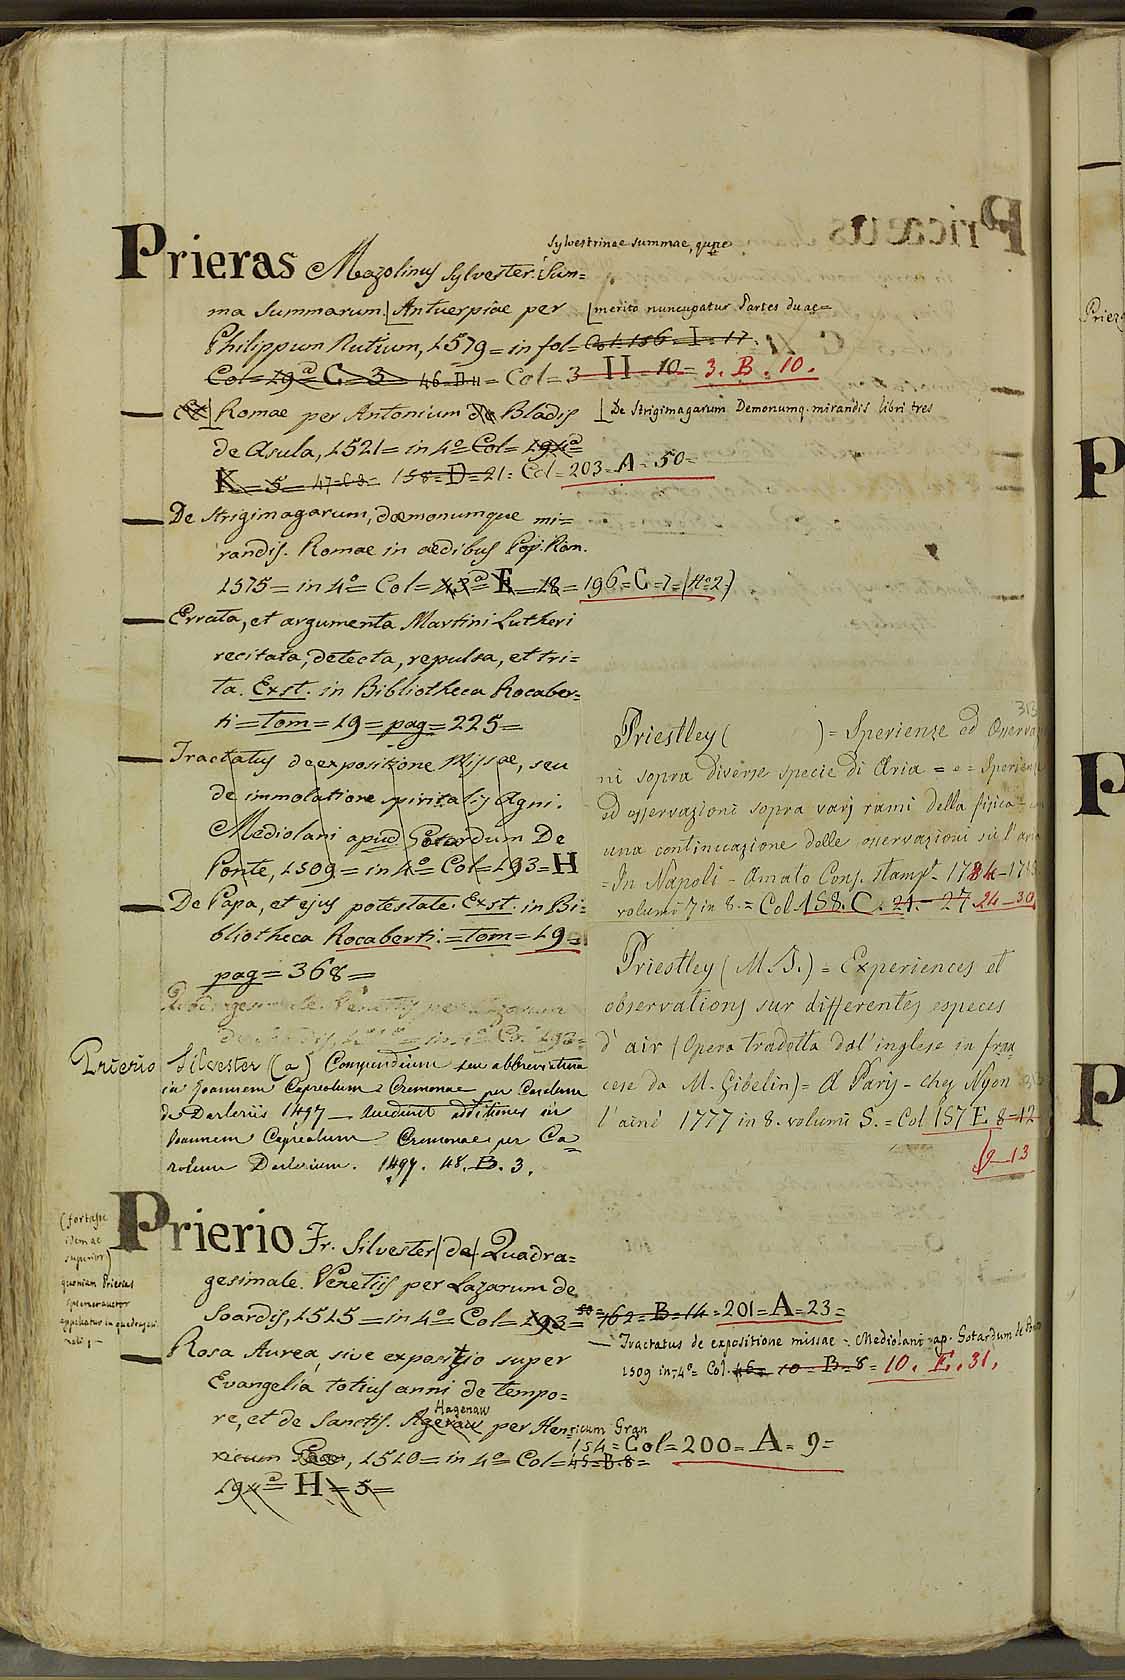 Sylvestrinae summae, quae
Prieras Mazolinus Sylvester. Sum=
ma Summarum. Antuerpiae per
merito nuncupatur Partes duae=
Philippum Nutium, 1579= in fol= Col. 156. I. 17.
Col= 19ª= C= 3= 46. D. 11= Col= 3 H= 10= 3. B. 10.
— Romae per Antonium de Bladis
De Strigimagarum Demonumq. mirandis libri tres
de Asula, 1521= in 4º Col= 194ª=
K= 5= 47= C 9= 158= D= 21= Col= 203= A= 50=
— De Strigimagarum, dæmonumque mi=
randis. Romae in ædibus Pop. Rom.
1575= in 4º= Col= 43ª= E= 18= 196= C= 7= (Nº 2.)
— Errata, et argumenta Martini Lutheri
recitata, detecta, repulsa, et tri=
ta. Exst. in Bibliotheca Rocaber=
ti= tom= 19= pag= 225=
— Tractatus de expositione Missae, seu
de immolatione spiritalis Agni.
Mediolani apud Gotardum De
Ponte, 1509= in 4º Col= 193= H
— De Papa, et ejus potestate. Exst. in Bi=
bliotheca Rocaberti.= tom= 19=
pag= 368=
Prierio Silvester (a) Compendium seu abbreviatura
in Joannem Capreolum Cremonae per Carolum
de Darleriis 1497 — additiones in
Joannem Capreolum Cremonae per Ca=
rolum Darlerium. 1497. 48. B. 3.
(fortasse
idem ac
superior)
quoniam Prieras
appellatur in quadragesi=
mali,-
Prierio Fr. Silvester (de) Quadra=
gesimale. Venetiis per Lazarum de
Soardis, 1515= in 4º= Col= 193= 762= B= 14= 201= A= 23=
— Rosa Aurea, sive expositio super
Evangelia totius anni de tempo=
Hagenaw
re, et de Sanctis. Agenaw per Hen=
ricum Gran
ricum Gran, 1510= in 4º= Col= 45= B. 8=
154= Col= 200= A= 9=
194ª= H= 5=
313
Priestley ( )= Sperienze ed Osservazio
ni sopra diverse specie di Aria = e = Sperienze
ed osservazioni sopra varj rami della fisica =
una continuazione delle osservazioni sù l'aria
= In Napoli - Amato Cons. Stamp. 1784-
volumi 7 in 8.= Col. 158. C. 21.- 27 24-30
Priestley (M. J.)= Experiences et
observations sur differentes especes
d'air (Opera tradotta dal'inglese in fran=
cese da M. Gibelin)= A Paris - chez Nyon
l'ainé 1777 in 8. volumi 5.= Col 157 E 8=12
9-13
— Tractatus de expositione missae. Mediolani ap. Gotardum de Ponte
1509 in-4º Col. 46= 10= B= 8= 10. E. 31.